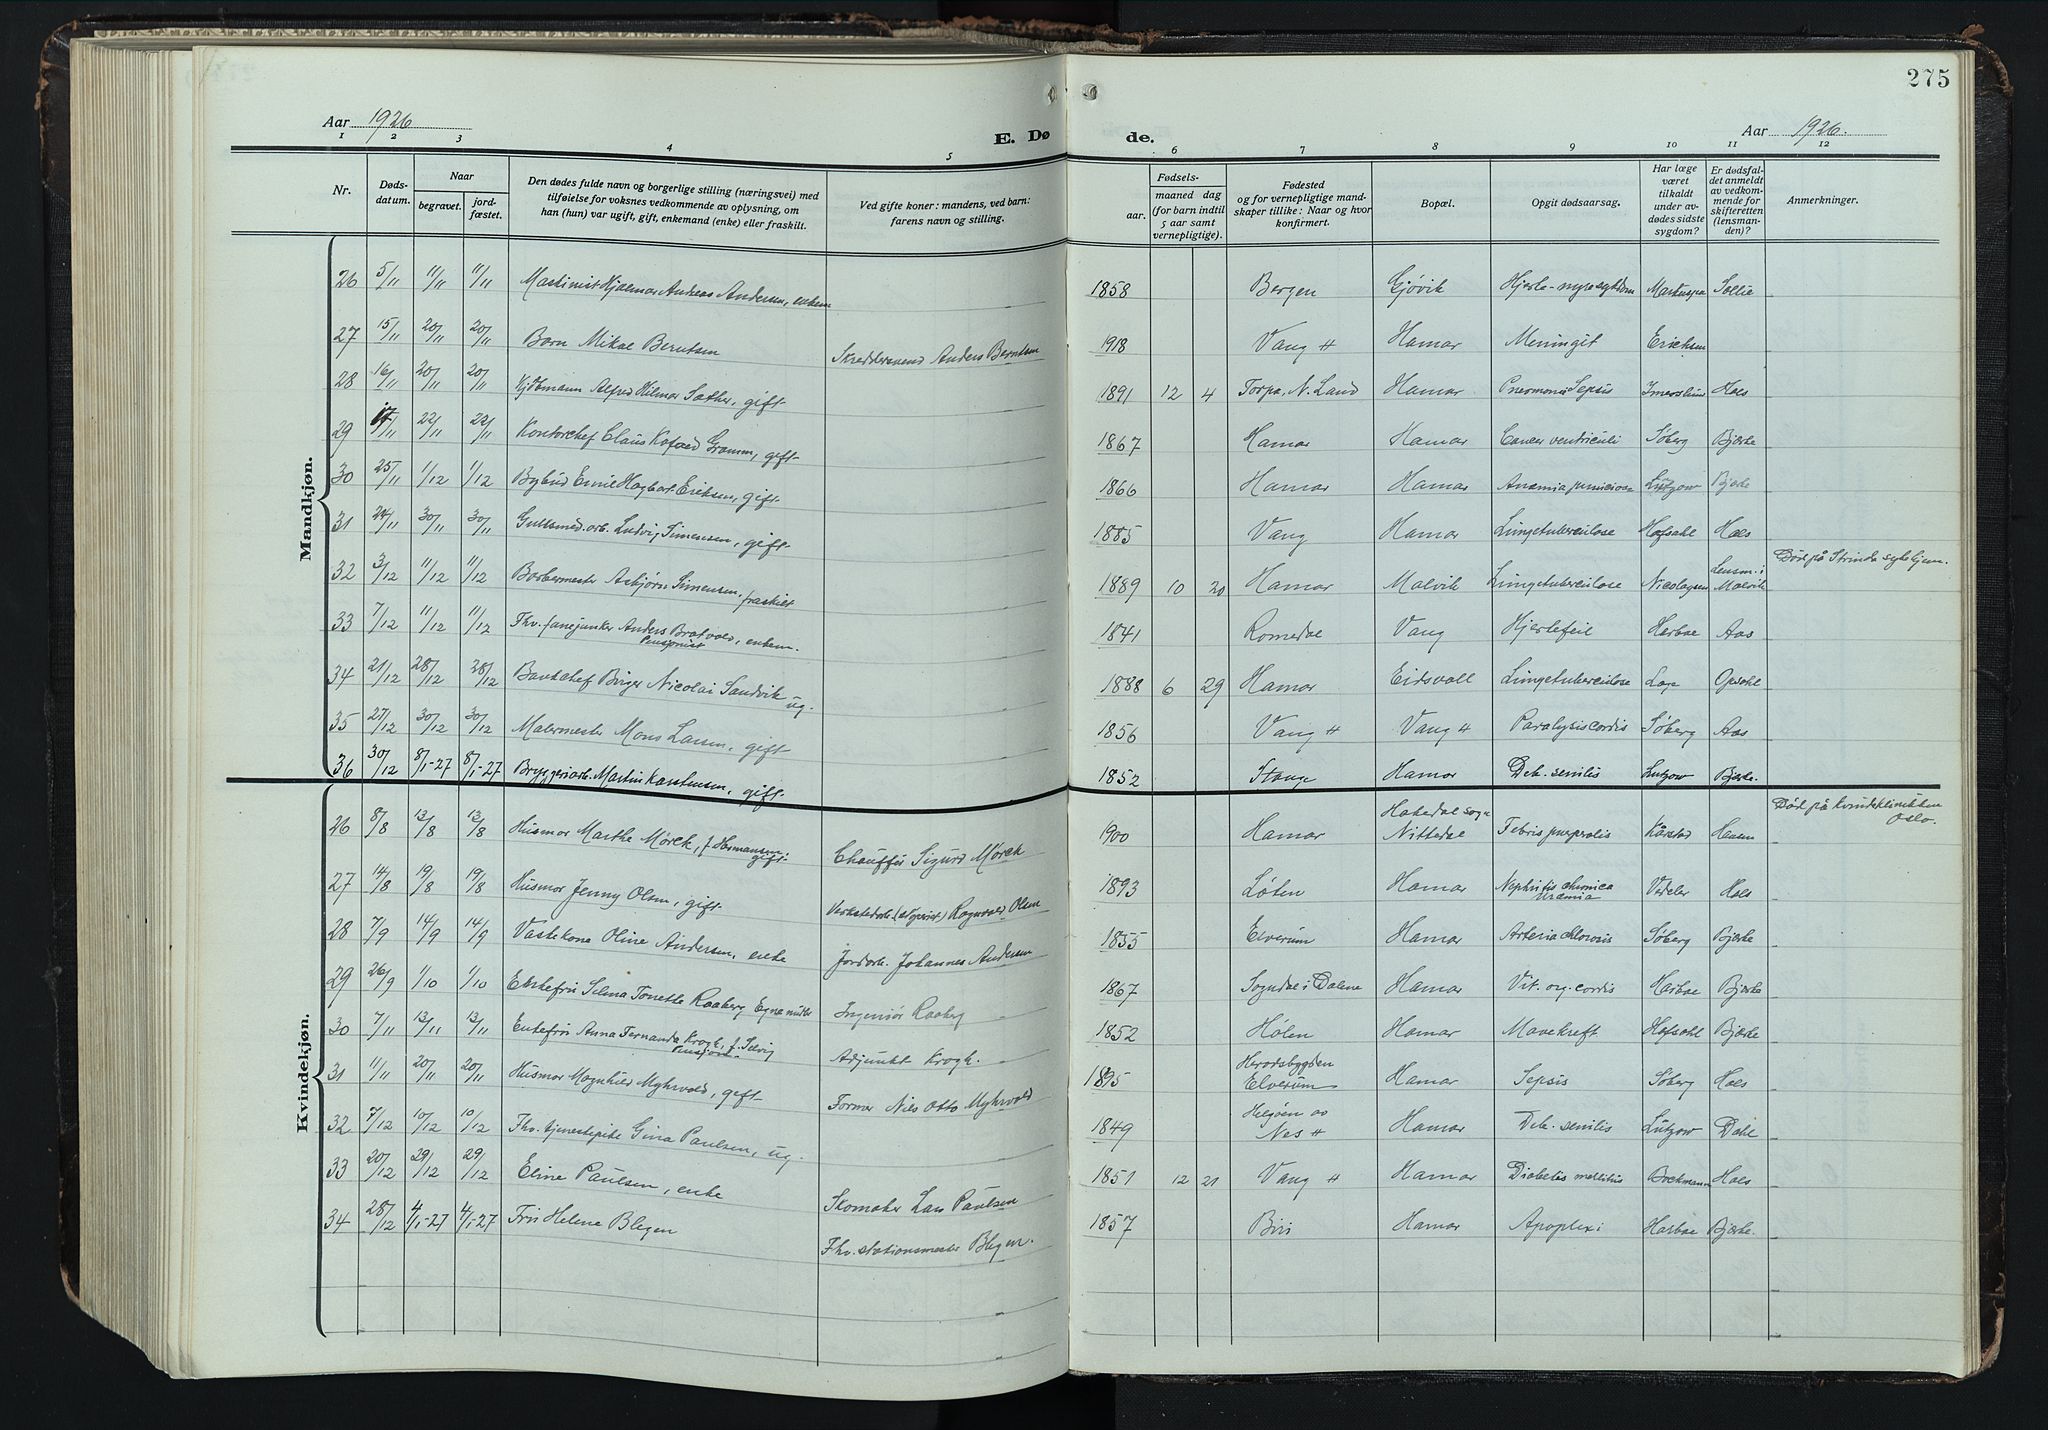 275
Aar 1926
E. Dø de.
Aar 1926.
1 2 3 4 5 6 7 8 9 10 11 12
Nr.
Døds-
datum.
Naar
begravet.
jord-
fæstet.
Den dødes fulde navn og borgerlige stilling (næringsvei) med
tilføielse for voksnes vedkommende av oplysning, om
han (hun) var ugift, gift, enkemand (enke) eller fraskilt.
Ved gifte koner: mandens, ved barn:
farens navn og stilling.
Fødsels-
aar.
maaned dag
(for barn indtil
5 aar samt
vernepligtige).
Fødested
og for vernepligtige mand-
skaper tillike: Naar og hvor
konfirmert.
Bopæl.
Opgit dødsaarsag.
Har læge
været
tilkaldt
under av-
dødes sidste
sygdom?
Er dødsfal-
det anmeldt
av vedkom-
mende for
skifteretten
(lensman-
den)?
Anmerkninger.
Mandkjøn.
26 5/11 11/11 11/11 Maskinist Hjalmar Andreas Andersen, enkem 1858 Bergen Gjøvik Hjerte-nyresykdom Sollie
27 15/11 20/11 20/11 Barn Mikal Berntsen Skreddersvend Anders Berntsen 1918 Vang H Hamar Meningit Eriksen
28 16/11 20/11 20/11 Kjøbmann Alfred Hilmar Sæther, gift 1891 12 4 Torpa, N. Land Hamar Pneumoni Sepsis Imerslund Hoel
29 17/11 22/11 22/11 Kontorchef Claus Kofoed Gramm, gift 1867 Hamar Hamar Cancer ventriculi Søberg Bjerke
30 25/11 1/12 1/12 Bybud Emil Hagbart Eriksen, gift 1866 Hamar Hamar Anæmia perniciosa Lützow Bjerke
31 24/11 30/11 30/11 Gullsmed.arb. Ludvig Simensen, gift 1885 Vang Hamar Lungetuberculose Hofsahl Hoel
32 3/12 11/12 11/12 Barbermester Asbjørn Simensen, fraskilt 1889 10 20 Hamar Malvik Lungetuberculose Nicolaysen Lensm. i
Malvik Død på Strinda sykehjem.
33 7/12 11/12 11/12 Fhv. fanejunker Anders Bratvold, enkem.
Pensjonist 1841 Romedal Vang Hjertefeil Harboe Aas
34 21/12 28/12 28/12 Bankchef Birger Nicolai Sandvik ug. 1888 6 29 Hamar Eidsvoll Lungetuberculose Opsahl
35 27/12 30/12 30/12 Malermester Mons Larsen, gift 1856 Vang H Vang H Paralysis cordis Søberg Aas
36 30/12 8/1-27 8/1-27 Bryggeriarb. Martin Karstensen, gift 1852 Stange Hamar Deb. senilis Lutzow Bjerke.
Kvindekjøn.
26 8/8 13/8 13/8 Husmor Marthe Mørck, f. Hermansen,
gift Chauffør Sigurd Mørck 1900 Hamar Hakedal sogn
Nittedal Febris puerperalis Hansen Død på kvindeklinikken
Oslo.
27 14/8 19/8 19/8 Husmor Jenny Olsen, gift Verkstedarb. Ragnvald Olsen 1893 Løten Hamar Nephritis chronica
Uræmia Vedeler Hoel
28 7/9 14/9 14/9 Vaskekone Oline Andersen, enke Jordarb. Johannes Andersen 1855 Elverum Hamar Søberg Bjerke
29 26/9 1/10 1/10 Enkefru Selma Tonette Raaberg Egne midler Ingeniør Raaberg 1867 Sogndal i Dalene Hamar Vit. org. cordis Harboe Bjerke
30 7/11 13/11 13/11 Enkefru Anna Fernanda Krogh, f. Selvig
Pensjon. Adjunkt Krogh. 1852 Hølen Hamar Mavekreft Hofsahl Bjerke
31 11/11 20/11 20/11 Husmor Magnhild Myhrvold, gift Former Nils Otto Myhrvold 1895 Herodsbygden
Elverum Hamar Sepsis Søberg Hoel
32 7/12 10/12 10/12 Fhv. tjenestepike Gina Paulsen, ug. 1849 Helgøen av
Nes H Hamar Deb. senilis Lutzow Dahl
33 20/12 29/12 29/12 Eline Paulsen, enke Skomaker Lars Paulsen 1851 12 21 Vang H Hamar Diabetes mellitus Hoel
34 28/12 4/1-27 4/1-27 Fru Helene Blegen Fhv. stationsmester Blegen. 1857 Biri Hamar Apoplexi Harboe Bjerke.